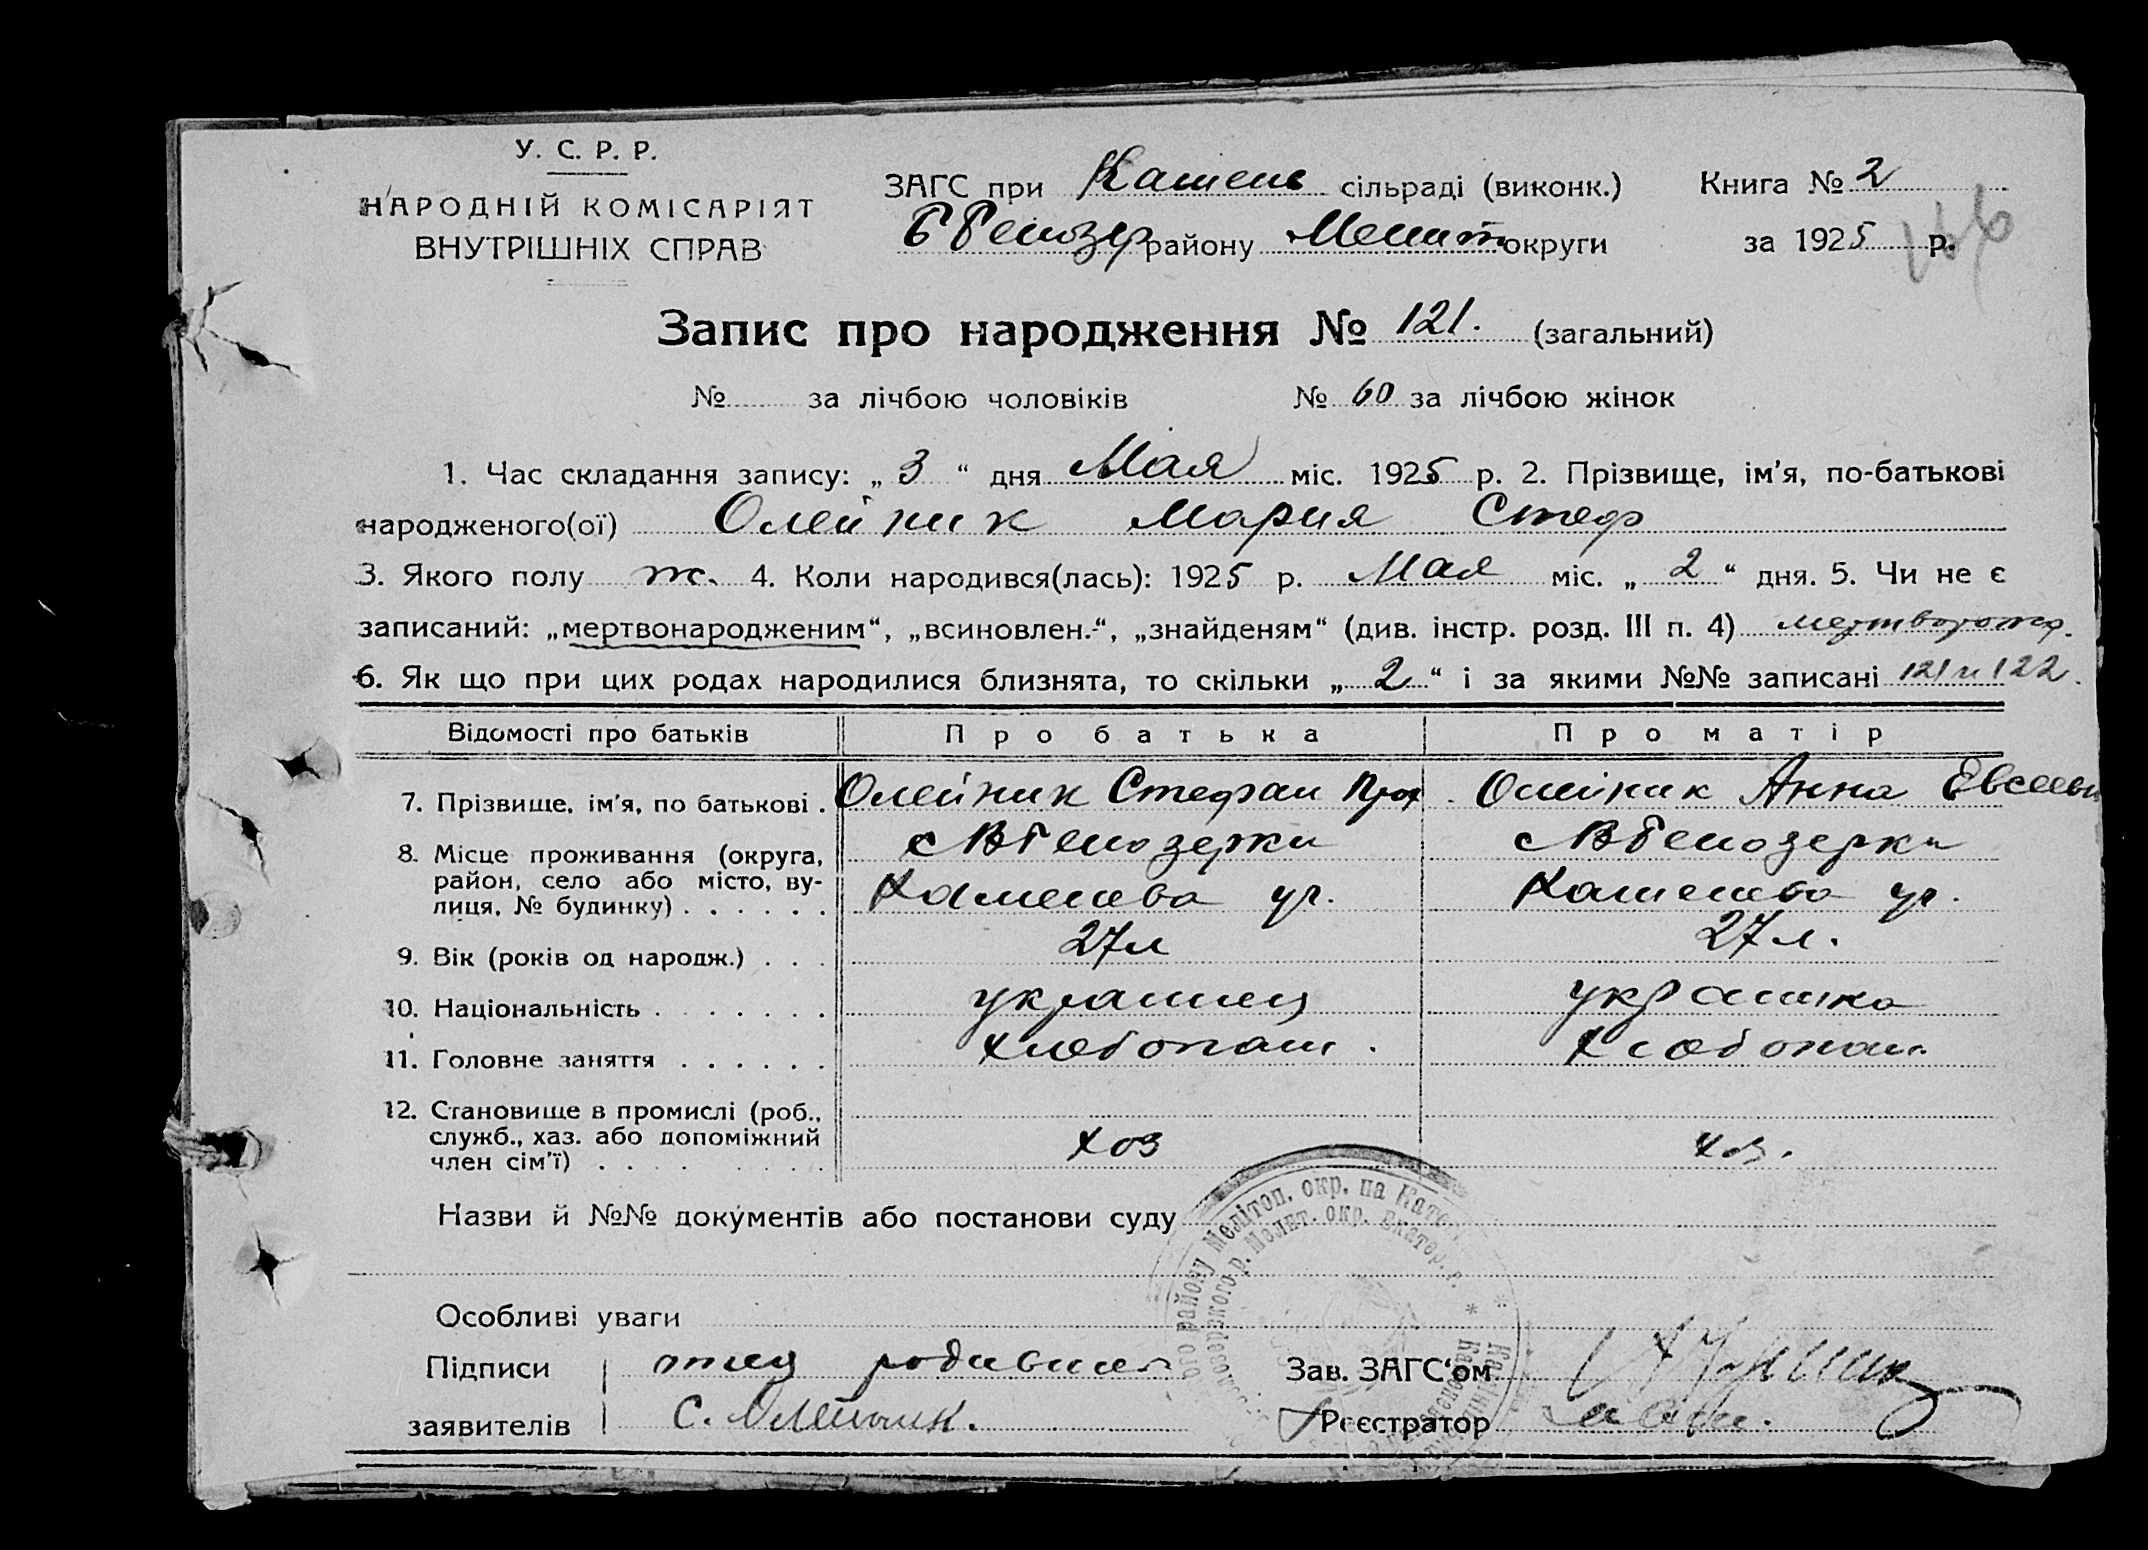 У. С. Р. Р.
НАРОДНІЙ КОМІСАРІЯТ
ВНУТРІШНІХ СПРАВ
ЗАГС при Камень сільраді (виконк.)
ББелозер району Мелит округи
Книга № 2
за 1925 р.
Запис про народження № 121. (загальний)
№ за лічбою чоловіків № 60 за лічбою жінок
1. Час складання запису: „ 3 “ дня Мая міс. 1925 р. 2. Прізвище, ім'я, по-батькові
народженого(ої) Олейник Мария Стеф
3. Якого полу ж. 4. Коли народився(лась): 1925 р. Мая міс. „ 2 “ дня. 5. Чи не є
записаний: „мертвонародженим“, „всиновлен.“, „знайденям“ (див. інстр. розд. III п. 4) мертворожд.
6. Як що при цих родах народилися близнята, то скільки „ 2 “ і за якими №№ записані 121 и 122.
Відомості про батьків Про батька Про матір
7. Прізвище, ім'я, по батькові . Олейник Стефан Проx. Олейник Анна Евсеев
8. Місце проживання (округа, район, село або місто, ву-
лиця, № будинку) . . . . . .
с ВБелозерки с ВБелозерки
Каменева ул. Каменева ул.
9. Вік (років од народж.) . . . 27л 27л.
10. Національність . . . . . . . украинец украинка
11. Головне заняття . . . . . . хлебопаш. хлебопаш.
12. Становище в промислі (роб.,
служб., хаз. або допоміжний
член сім'ї) . . . . . . . . . хоз хоз.
Назви й №№ документів або постанови суду
Особливі уваги
Підписи отец родивший Зав. ЗАГС'ом
заявителів С. Олейник. Реєстратор
ого району Мелітоп. окр. на Катер
лозерского р. Мелит. окр. Екатер. г.